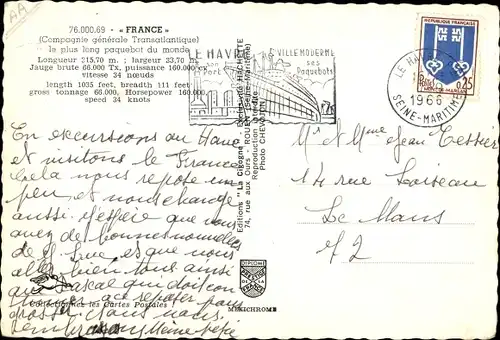 AA
76.000.69 - « FRANCE »
(Compagnie générale Transatlantique)
le plus long paquebot du monde
Longueur 315,70 m. ; largeur 33,70 m.
Jauge brute 66.000 Tx, puissance 160.000 cv
vitesse 34 nœuds
length 1035 feet, breadth 111 feet
gross tonnage 66.000. Horsepower 160.000
speed 34 knots
LE HAVRE
son
Port
VILLE MODERNE
ses
Paquebots
RÉPUBLIQUE FRANÇAISE
0,25
LE HAVRE
1966
SEINE-MARITIME
En excursions au Havre
et visitons le France
cela nous repose un
peu et nous change
aussi. J'espère que vous
avez de bonnes nouvelles
de et que vous
allez bien tous ainsi
que Pascal qui doit
se reposer
nous
Editions "La Cigogne" - HACHETTE
74, rue aux Ours - ROUEN (Seine-Maritime)
Reproduction interdite
Photo CHEVOJON
Mr et Mme Jean Tessier
14 rue Loiseau
Le Mans
72
Collectionnez les Cartes Postales
DIPLOME
MEXICHROME